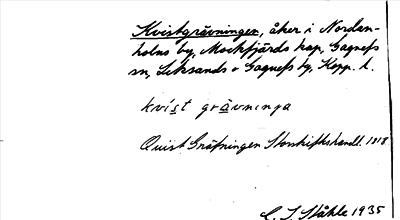 Kvistgrävningen, åker i Nordan-
holns by, Mockfjärds kap, Gagnefs
sn, Leksands o Gagnefs tg, Kopp. l.
kvíst grävnɩnga
Quist Gräfningen Storskifteshandl. 1818
C. I. Ståhle 1935